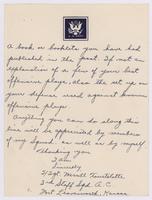 A book or booklets you have had
published in the past. If not an
explanation of a few of your best
offensive plays, also the set up on
your defense used against various
offensive plays.
Anything you can do along this
line will be appreciated by members
of my squad, as well as by myself.
Thanking you
I am
Sincerely
S/Sgt. Merell
3rd Staff Sqd. A. C.
Fort Leavenworth, Kansas